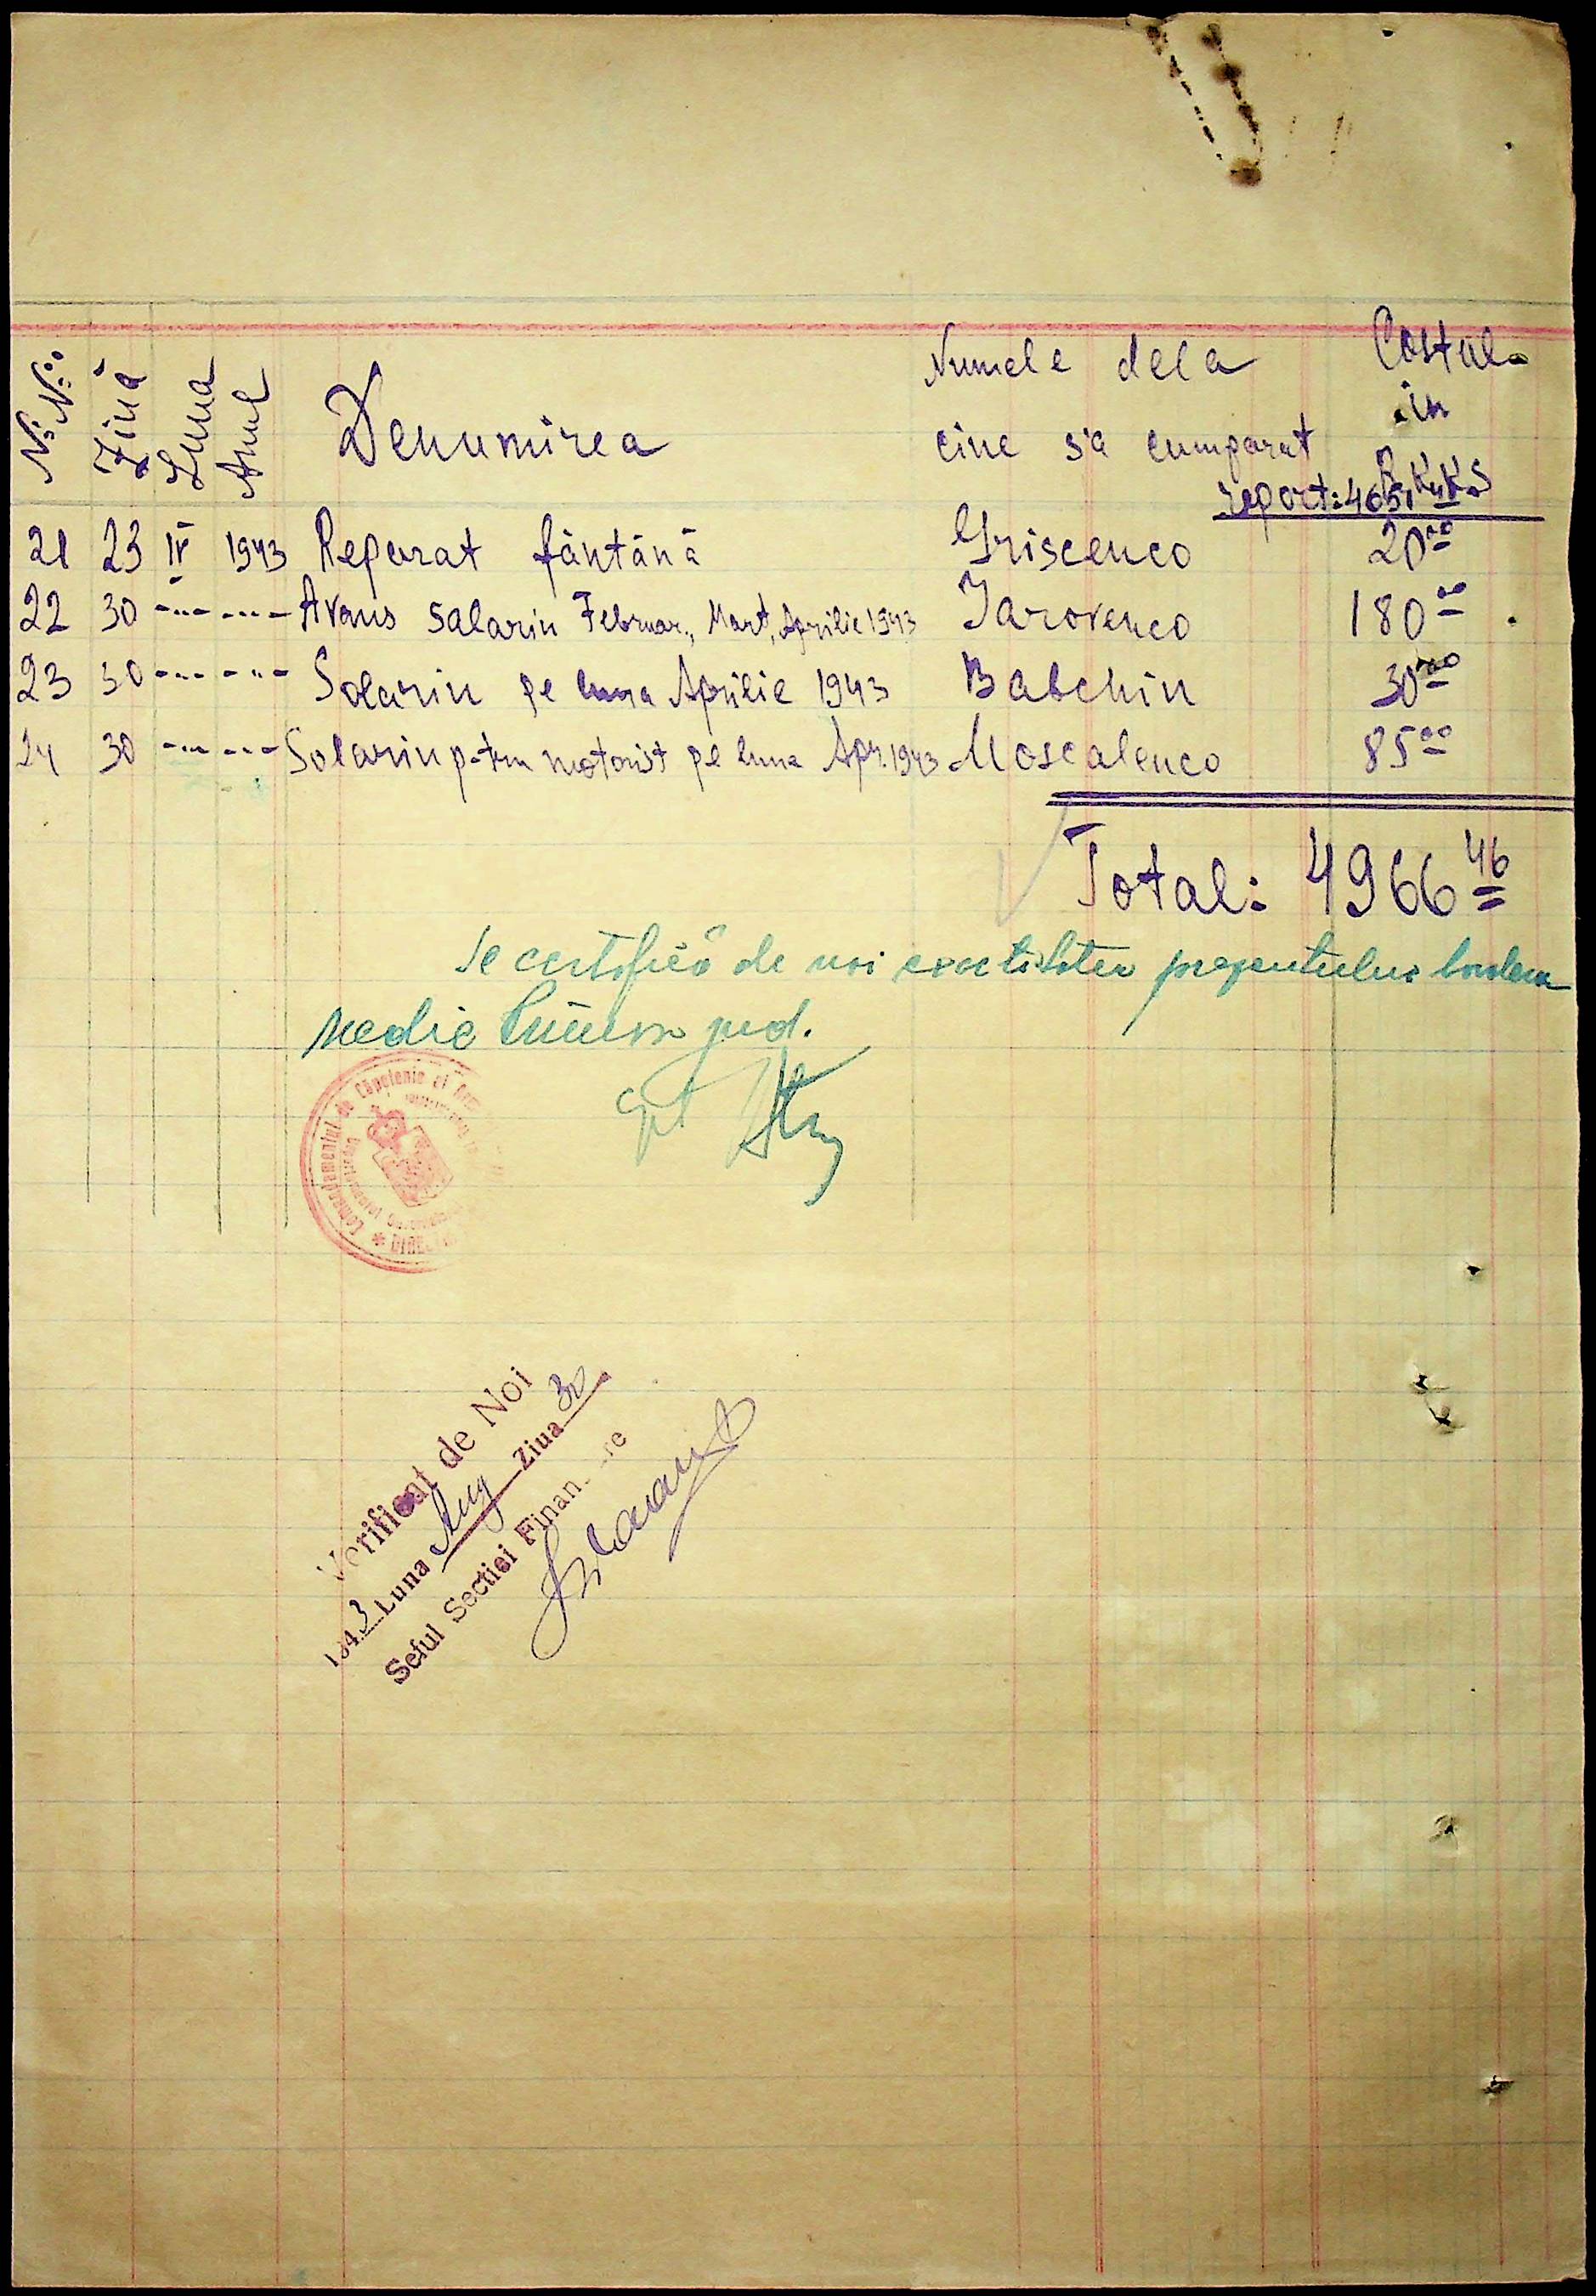 N:N:o Ziua Luna Anul Denumirea Numele dela cine s'a cumparat Costul in R.K.K.S
report: 4651,46
21 23 IV 1943 Reparat fântână Griscenco 20,00
22 30 -"- -"- Avans salariu Februar., Mart, Aprilie 1943 Iarovenco 180,00
23 30 -"- -"- Salariu pe luna Aprilie 1943 Babchin 30,00
24 30 -"- -"- Salariu p-tru motorist pe luna Apr. 1943 Moscalenco 85,00
Total: 4966,46
Se certifică de noi exactitatea prezentului
Medic jud.
Cpt
Comandamentul de Căpetenie al
Verificat de Noi
1943 Luna Aug Ziua 30
Seful Sectiei Finan re